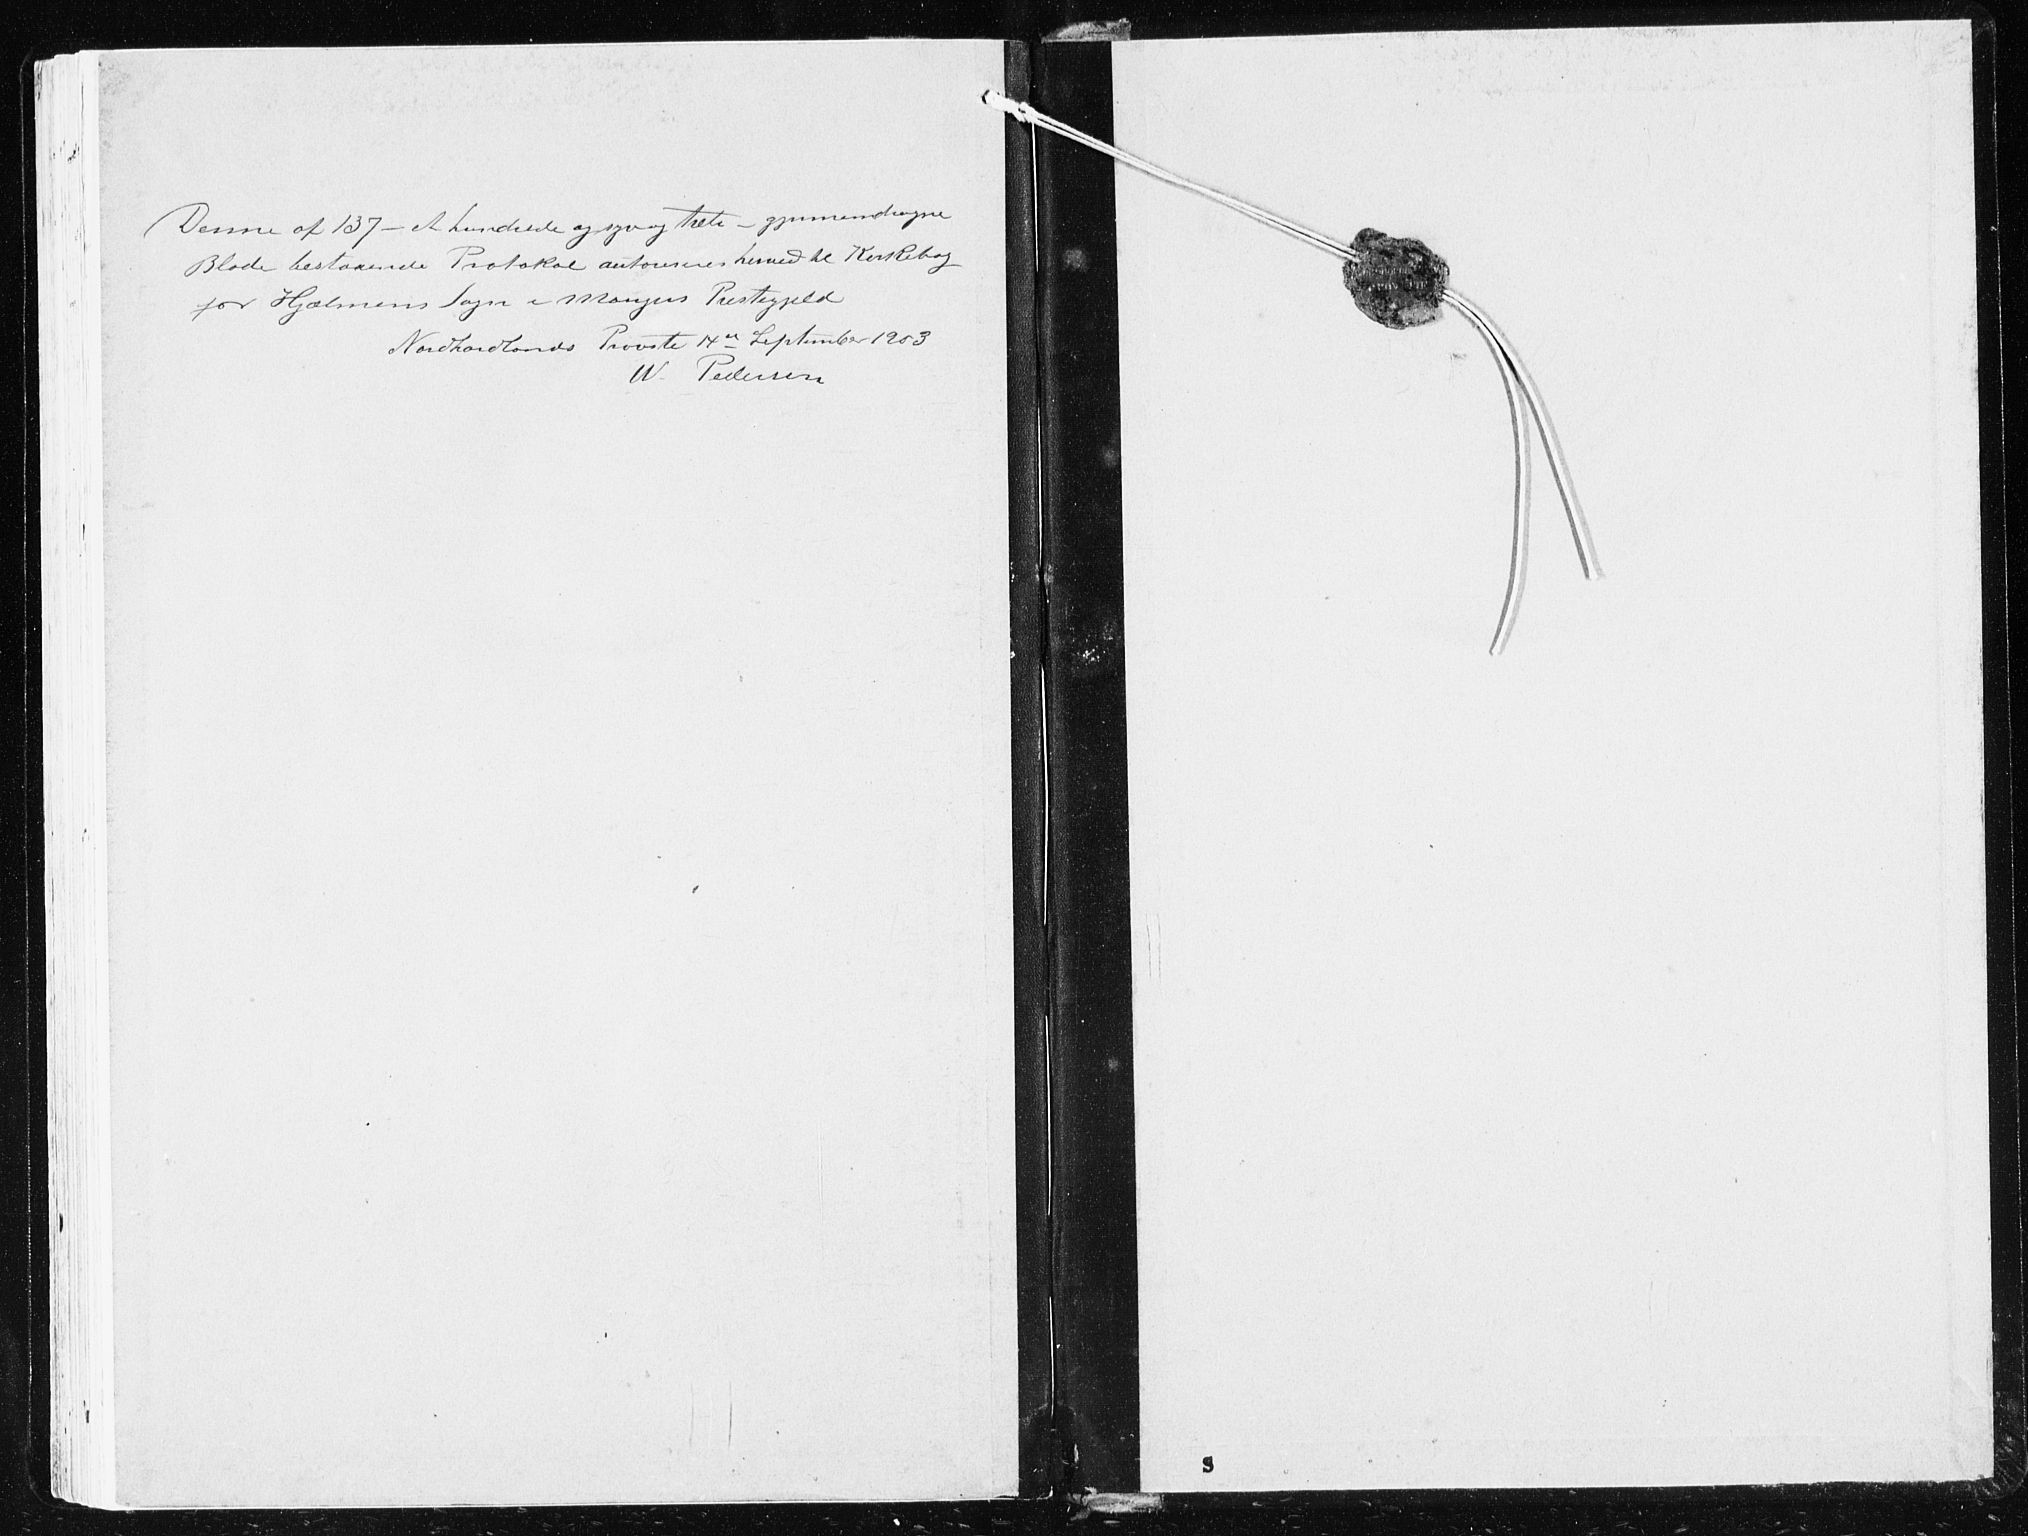 Denne af 137 – et hundrede og syv og treti – gjennemdragne
Blade bestaaende Protokol autoriseres herved til Kirkebog
for Hjelmens Sogn i Mangers Prestegjeld
Nordhordlands Provsti 14de September 1903
W. Pedersen
S